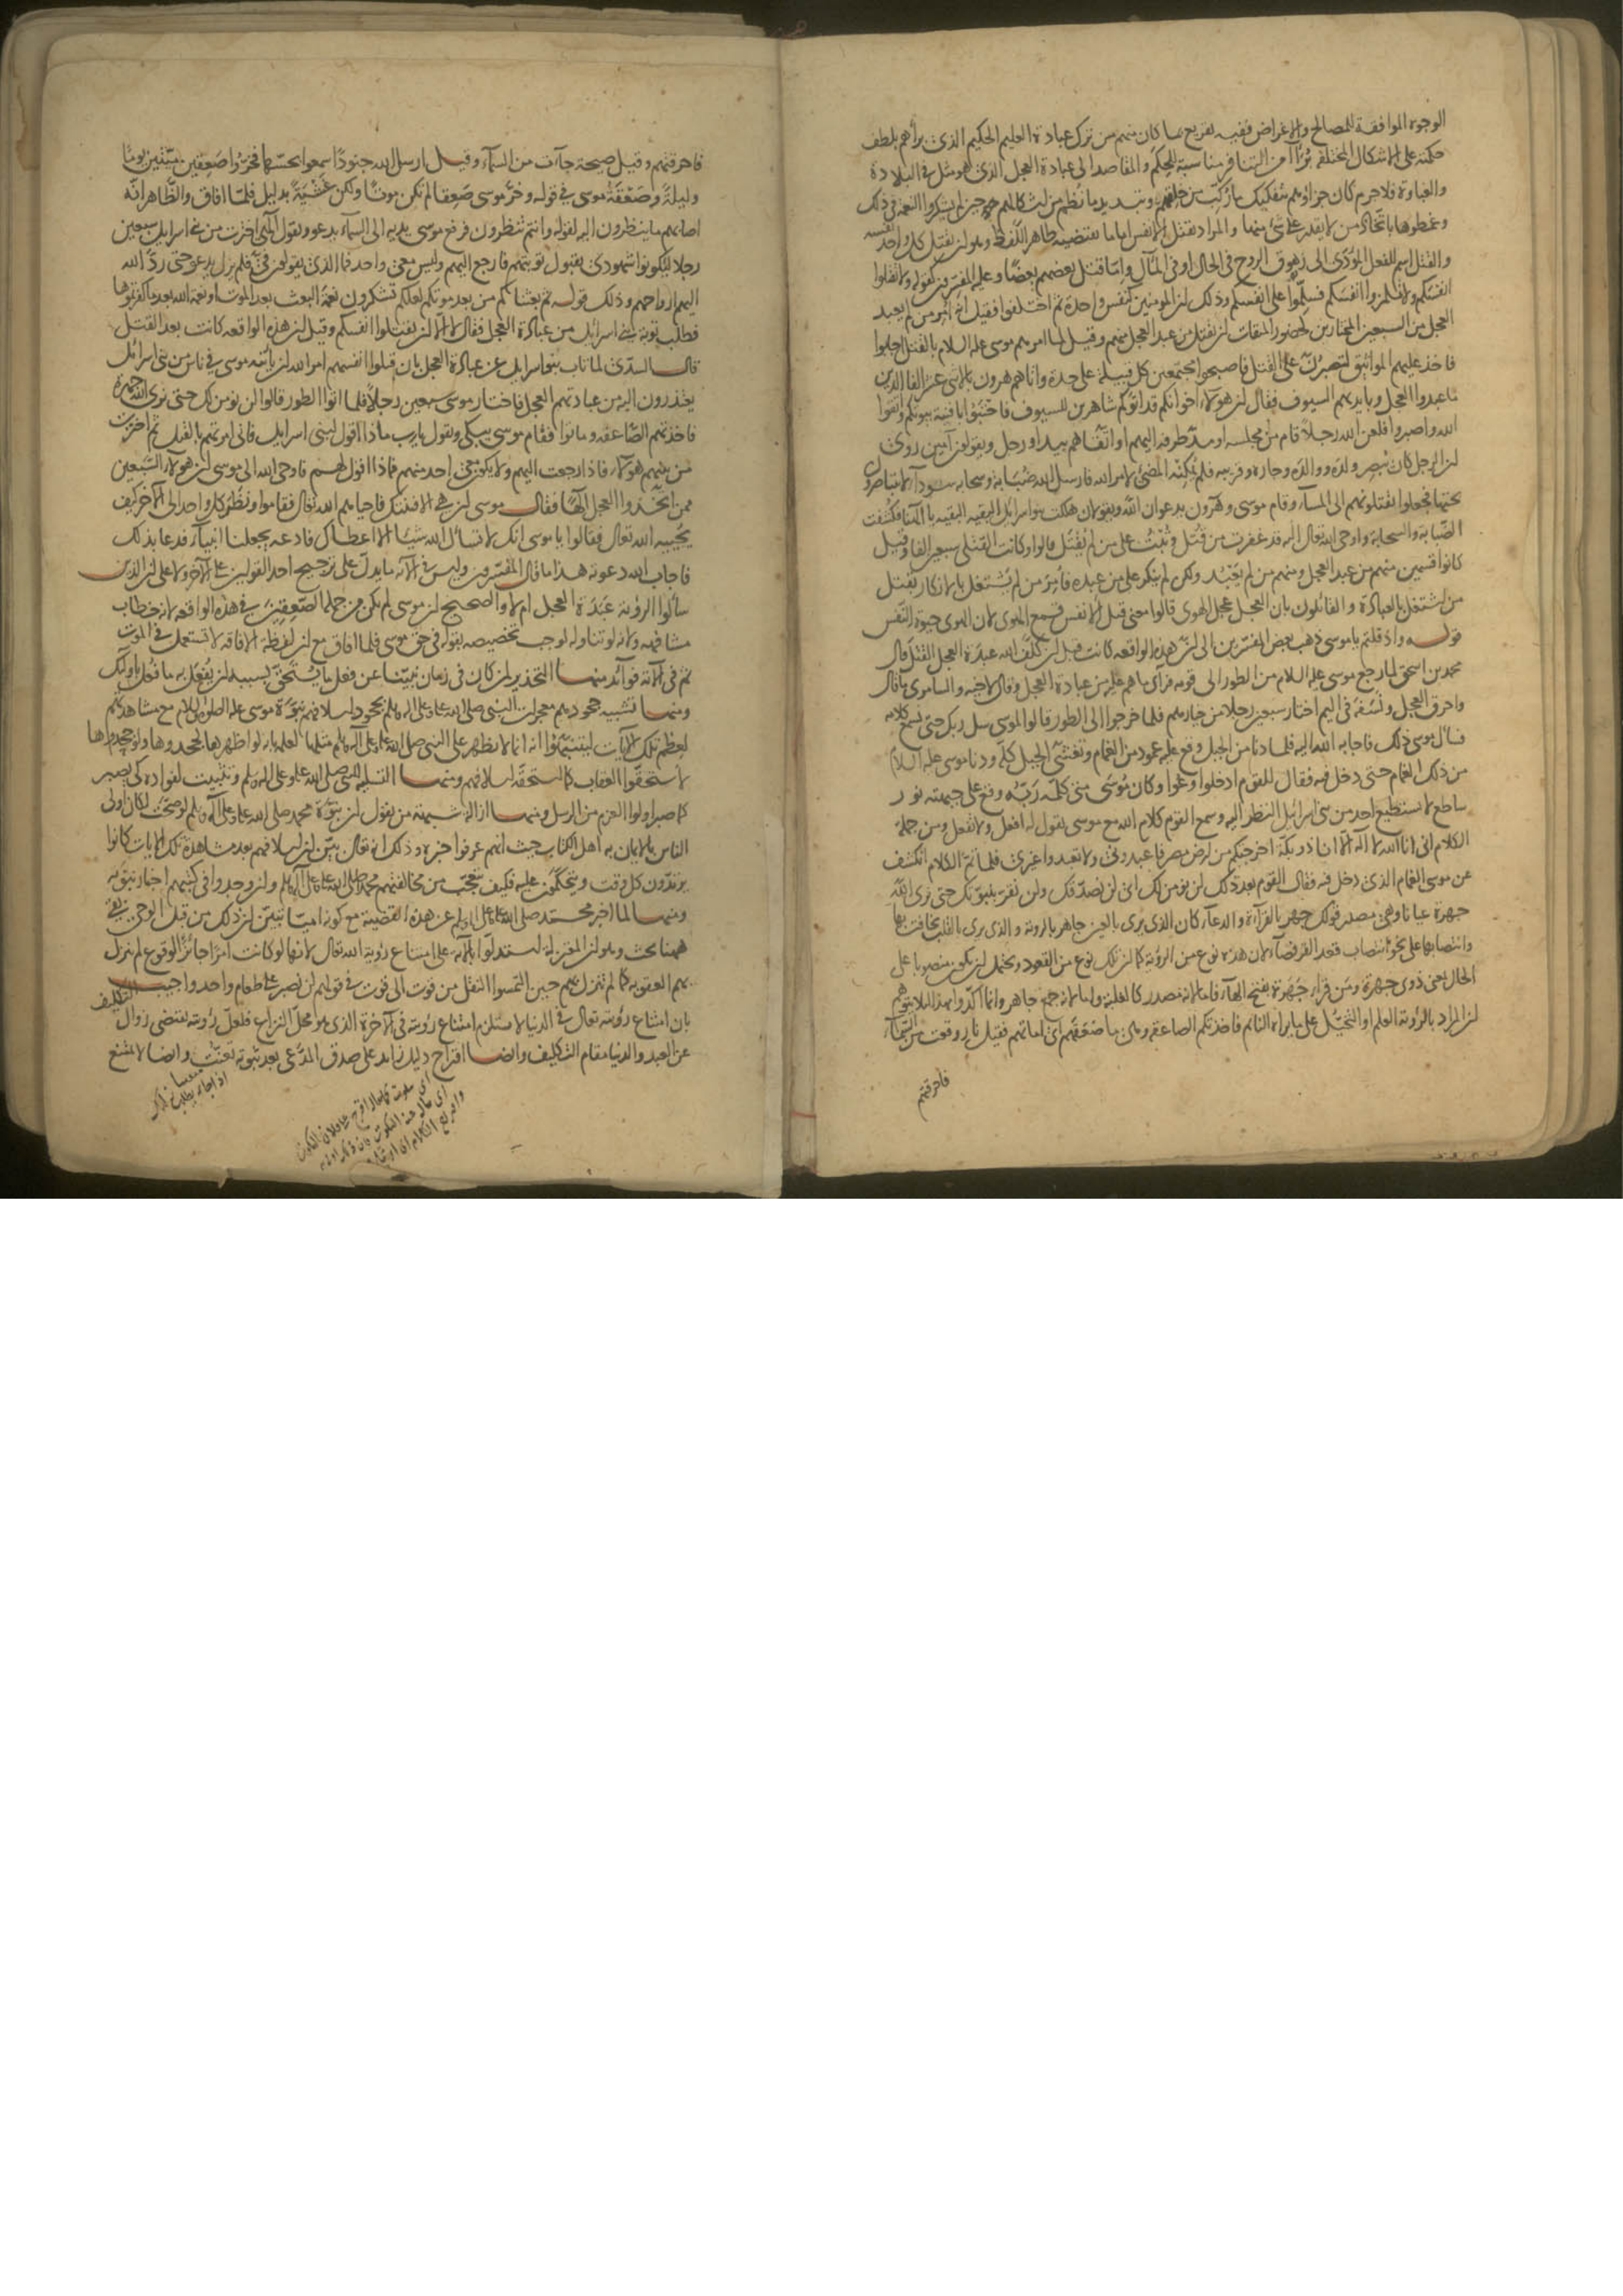 الوجوه الموافقة للمصالح والاغراض ففيه تقريع بما كان منهم من ترك عبادة العليم الحكيم الذي برأهم بلطف
حكمته على الاشكال المختلفة برآء من التنافر مناسبة للحكم والمقاصد الى عبادة العجل الذي هو مثل في البلادة
والغباوة فلا جرم كان جزاؤهم تفكيك ما ركب من خلقهم وتبديد ما نظم من اشكالهم حين لم يشكروا النعمة في ذلك
وغمطوها باتخاذ من لا يقدر على شئ منها والمراد بقتل الانفس اما ما يقتضيه ظاهر اللفظ وهو ان يقتل كل واحد نفسه
والقتل اسم للفعل المؤدى الى زهوق الروح في الحال او في المآل واما قتل بعضهم بعضا وعليه المفسرون كقوله ولا تقتلوا
انفسكم ولا تلمزوا انفسكم فسلموا على انفسكم وذلك ان المومنين كنفس واحدة ثم اختلفوا فقيل انه امر من لم يعبد
العجل من السبعين المختارين لحضور الميقات ان يقتل من عبد العجل منهم وقيل لما امرهم موسى عليه السلام بالقتل اجابوا
فاخذ عليهم المواثيق لتصبرن على القتل فاصبحوا مجتمعين كل قبيلة على حدة واتاهم هرون بالاثنى عشر الفا الذين
ما عبدوا العجل وبايديهم السيوف فقال ان هولاء اخوانكم قد اتوكم شاهرين السيوف فاجتبوا بافنية بيوتكم واتقوا
الله واصبروا فلعن الله رجلا قام من مجلسه او مد طرفه اليهم او اتقاهم بيد او رجل ويقولون آمين روى
ان الرجل كان يبصر ولده ووالده وجاره وقريبه فلم يمكنه المضى لامر الله فارسل الله ضبابة وسحابة سوداء لا يتباصرون
تحتها فجعلوا يقتلونهم الى المساء وقام موسى وهرون يدعوان الله ويقولان هلكت بنو اسرائيل البقية البقية يا الهنا فكشفت
الضبابة والسحابة واوحى الله تعالى اليه قد غفرت من قتل وتبت على من لم يقتل قالوا وكانت القتلى سبعين الفا وقيل
كانوا قسمين منهم من عبد العجل ومنهم من لم يعبد ولكن لم ينكر على من عبده فامر من لم يشتغل بالانكار بقتل
من اشتغل بالعبادة والقائلون بان العجل عجل الهوى قالوا معنى قتل الانفس قمع الهوى لان الهوى حيوة النفس
قوله واذ قلتم يا موسى ذهب بعض المفسرين الى ان هذه الواقعة كانت قبل ان كلف الله عبدة العجل القتل قال
محمد بن اسحق لما رجع موسى عليه السلام من الطور الى قومه فرآى ما هم عليه من عبادة العجل وقال لاخيه والسامرى ما قال
واحرق العجل ونسفه في اليم اختار سبعين رجلا من خيارهم فلما خرجوا الى الطور قالوا لموسى سل ربك حتى نسمع كلامه
فسال موسى ذلك فاجابه الله اليه فلما دنا من الجبل وقع عليه عمود من الغمام وتغشى الجبل كله ودنا موسى عليه السلام
من ذلك الغمام حتى دخل فيه فقال للقوم ادخلوا وعوا وكان موسى متى كلمه ربه وقع على جبهته نور
ساطع لا يستطيع احد من بنى اسرائيل النظر اليه وسمع القوم كلام الله مع موسى يقول له افعل ولا تفعل ومن جملة
الكلام انى انا الله لا اله الا انا ذو بكة اخرجتكم من ارض مصر فاعبدونى ولا تعبدوا غيرى فلما تم الكلام انكشف
عن موسى الغمام الذي دخل فيه فقال القوم بعد ذلك لن نومن لك اى لن نصدقك ولن نقر بنبوتك حتى نرى الله
جهرة عيانا وهى مصدر قولك جهر بالقراءة والدعاء كان الذي يرى بالعين جاهر بالروية والذي يرى بالقلب يخافت بها
وانتصابها على نحو انتصاب قعد القرفصاء لان هذه نوع من الروية كما ان تلك نوع من القعود ويحتمل ان يكون منصوبا على
الحال بمعنى ذوى جهرة ومن قرأ جهرة بفتح الهاء فاما لانه مصدر كالغلبة واما لانه جمع جاهر وانما اكدوا بهذا لئلا يتوهم
ان المراد بالروية العلم او التخيل على ما يراه النائم فاخذتكم الصاعقة وهى ما صعقهم اى اماتهم فقيل نار وقعت من السماء
فاحرقتهم
فاحرقتهم وقيل صيحة جآءت من السماء وقيل ارسل الله جنودا سمعوا بحسها فخروا صعقين ميتين يوما
وليلة وصعقة موسى في قوله وخر موسى صعقا لم تكن موتا ولكن غشية بدليل فلما افاق والظاهر انه
اصابهم ما ينظرون اليه لقوله وانتم تنظرون فرفع موسى يديه الى السماء يدعو ويقول الهى اخترت من بنى اسرايل سبعين
رجلا ليكونوا شهودى بقبول توبتهم فارجع اليهم وليس معى واحد فما الذي يقولون في فلم يزل يدعو حتى رد الله
اليهم ارواحهم وذلك قوله ثم بعثناكم من بعد موتكم لعلكم تشكرون نعمة البعث بعد الموت او نعمة الله بعد ما كفرتموها
فطلب توبة بنى اسرايل من عبادة العجل فقال لا الا ان يقتلوا انفسكم وقيل ان هذه الواقعة كانت بعد القتل
قال السدى لما تاب بنو اسرايل عن عبادة العجل بان قتلوا انفسهم امر الله ان ياتيه موسى في ناس من بنى اسرائل
يعتذرون اليه من عبادتهم العجل فاختار موسى سبعين رجلا فلما اتوا الطور قالوا لن نومن لك حتى نرى الله جهرة
فاخذتهم الصاعقة وماتوا فقام موسى يبكى ويقول يا رب ماذا اقول لبنى اسرايل فانى امرتهم بالقتل ثم اخترت
من بينهم هولاء فاذا رجعت اليهم ولا يكون معى احد منهم فماذا اقول لهم فاوحى الله الى موسى ان هولاء السبعين
ممن اتخذوا العجل الها فقال موسى ان هى الا فتنتك فاحياهم الله تعالى فقاموا ونظر كل واحد الى الآخر كيف
يحييه الله تعالى فقالوا يا موسى انك لا تسأل الله شيئا الا اعطاك فادعه يجعلنا انبيآء فدعا بذلك
فاجاب الله دعوته هذا ما قال المفسرون وليس في الآية ما يدل على ترجيح احد القولين على الآخر ولا على ان الذين
سألوا الروية عبدة العجل ام لا والصحيح ان موسى لم يكن من جملة الصعقين في هذه الواقعة لانه خطاب
مشافهة ولانه لو تناوله لوجب تخصيصه بقوله في حق موسى فلما افاق مع ان لفظة الافاقة لا تستعمل في الموت
ثم في الآية فوآئد منها التحذير لمن كان في زمان نبينا عن فعل ما يستحق بسببه ان يفعل به ما فعل باولئك
ومنها تشبيه جحودهم معجزات النبي صلى الله عليه وعلى اله وسلم بجحود اسلافهم نبوة موسى عليه الصلوة والسلام مع مشاهدتهم
لعظم تلك الآيات ليتنبهوا انه انما لا يظهر على النبي صلى الله عليه وعلى آله وسلم مثلها لعلمه بانه لو اظهرها لجحدوها ولو جحدوها
لاستحقوا العقاب كما استحقه اسلافهم ومنها التسلية للنبي صلى الله عليه وعلى اله وسلم وتثبيت لفؤاده كى يصبر
كما صبر اولوا العزم من الرسل ومنها ازالة شبهة من يقول ان نبوة محمد صلى الله عليه وعلى آله وسلم لو صحت لكان اولى
الناس بالايمان به اهل الكتاب حيث انهم عرفوا خبره وذلك انه تعالى بين ان اسلافهم بعد مشاهدة تلك الايات كانوا
يرتدون كل وقت ويتحكمون عليه فكيف يتعجب من مخالفتهم محمدا صلى الله عليه وعلى آله وسلم وان وجدوا في كتبهم اخبار نبوته
ومنها لما اخبر محمد صلى الله عليه وعلى اله وسلم عن هذه القصة مع كونه اميا تبين ان ذلك من قبل الوحى بقى
ههنا بحث وهو ان المعتزلة استدلوا بالآية على امتناع روية الله تعالى لانها لو كانت امرا جائز الوقوع لم ينزل
بهم العقوبة كما لم تنزل بهم حين التمسوا النقل من قوت الى قوت في قولهم لن نصبر على طعام واحد واجيب
بان امتناع رويته تعالى في الدنيا لا يستلزم امتناع رويته في الآخرة الذي هو محل النزاع فلعل رويته تقتضى زوال التكليف
عن العبد والدنيا مقام التكليف وايضا اقتراح دليل زايد على صدق المدعى بعد ثبوته تعنت وايضا لا يمتنع